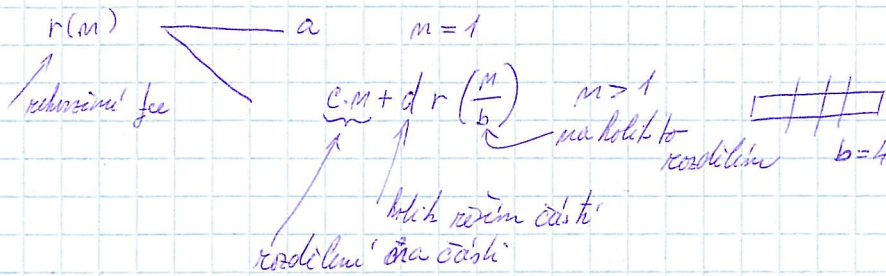 r(n) a n = 1
rekurzivní fce c.n + d r (n/b) n > 1
na kolik to
rozdělím b=4
kolik řeším částí
rozdělení na části